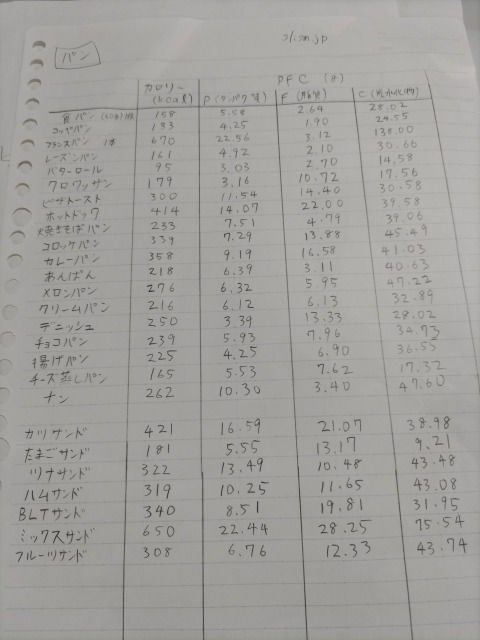 slism.jp
パン
カロリー PFC (g)
(kcal) P(タンパク質) F(脂質) C(炭水化物)
食パン(60g)1枚 158 5.58 2.64 28.02
コッペパン 133 4.25 1.90 24.55
フランスパン 1本 670 22.56 3.12 138.00
レーズンパン 161 4.92 2.10 30.66
バターロール 95 3.03 2.70 14.58
クロワッサン 179 3.16 10.72 17.56
ピザトースト 300 11.54 14.40 30.58
ホットドック 414 14.07 22.00 39.58
焼きそばパン 233 7.51 4.79 39.06
コロッケパン 339 7.29 13.88 45.49
カレーパン 358 9.19 16.58 41.03
あんぱん 218 6.39 3.11 40.63
メロンパン 276 6.32 5.95 47.22
クリームパン 216 6.12 6.13 32.89
デニッシュ 250 3.39 13.33 28.02
チョコパン 239 5.93 7.96 34.73
揚げパン 225 4.25 6.90 36.55
チーズ蒸しパン 165 5.53 7.62 17.32
ナン 262 10.30 3.40 47.60
カツサンド 421 16.59 21.07 38.98
たまごサンド 181 5.55 13.17 9.21
ツナサンド 322 13.49 10.48 43.48
ハムサンド 319 10.25 11.65 43.08
BLTサンド 340 8.51 19.81 31.95
ミックスサンド 650 22.44 28.25 75.54
フルーツサンド 308 6.76 12.33 43.74